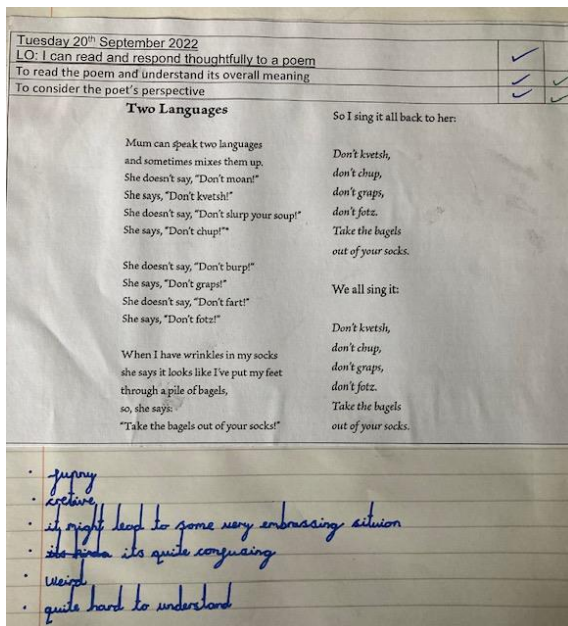 Tuesday 20th September 2022
LO: I can read and respond thoughtfully to a poem
To read the poem and understand its overall meaning
To consider the poet's perspective
Two Languages
Mum can speak two languages
and sometimes mixes them up.
She doesn't say, "Don't moan!"
She says, "Don't kvetsh!"
She doesn't say, "Don't slurp your soup!"
She says, "Don't chup!"*
She doesn't say, "Don't burp!"
She says, "Don't graps!"
She doesn't say, "Don't fart!"
She says, "Don't fotz!"
When I have wrinkles in my socks
she says it looks like I've put my feet
through a pile of bagels,
so, she says:
"Take the bagels out of your socks!"
So I sing it all back to her:
Don't kvetsh,
don't chup,
don't graps,
don't fotz.
Take the bagels
out of your socks.
We all sing it:
Don't kvetsh,
don't chup,
don't graps,
don't fotz.
Take the bagels
out of your socks.
• funny
• cretive
• it might lead to some very embrassing situion
• its kinda its quite confusing
• weird
• quite hard to understand